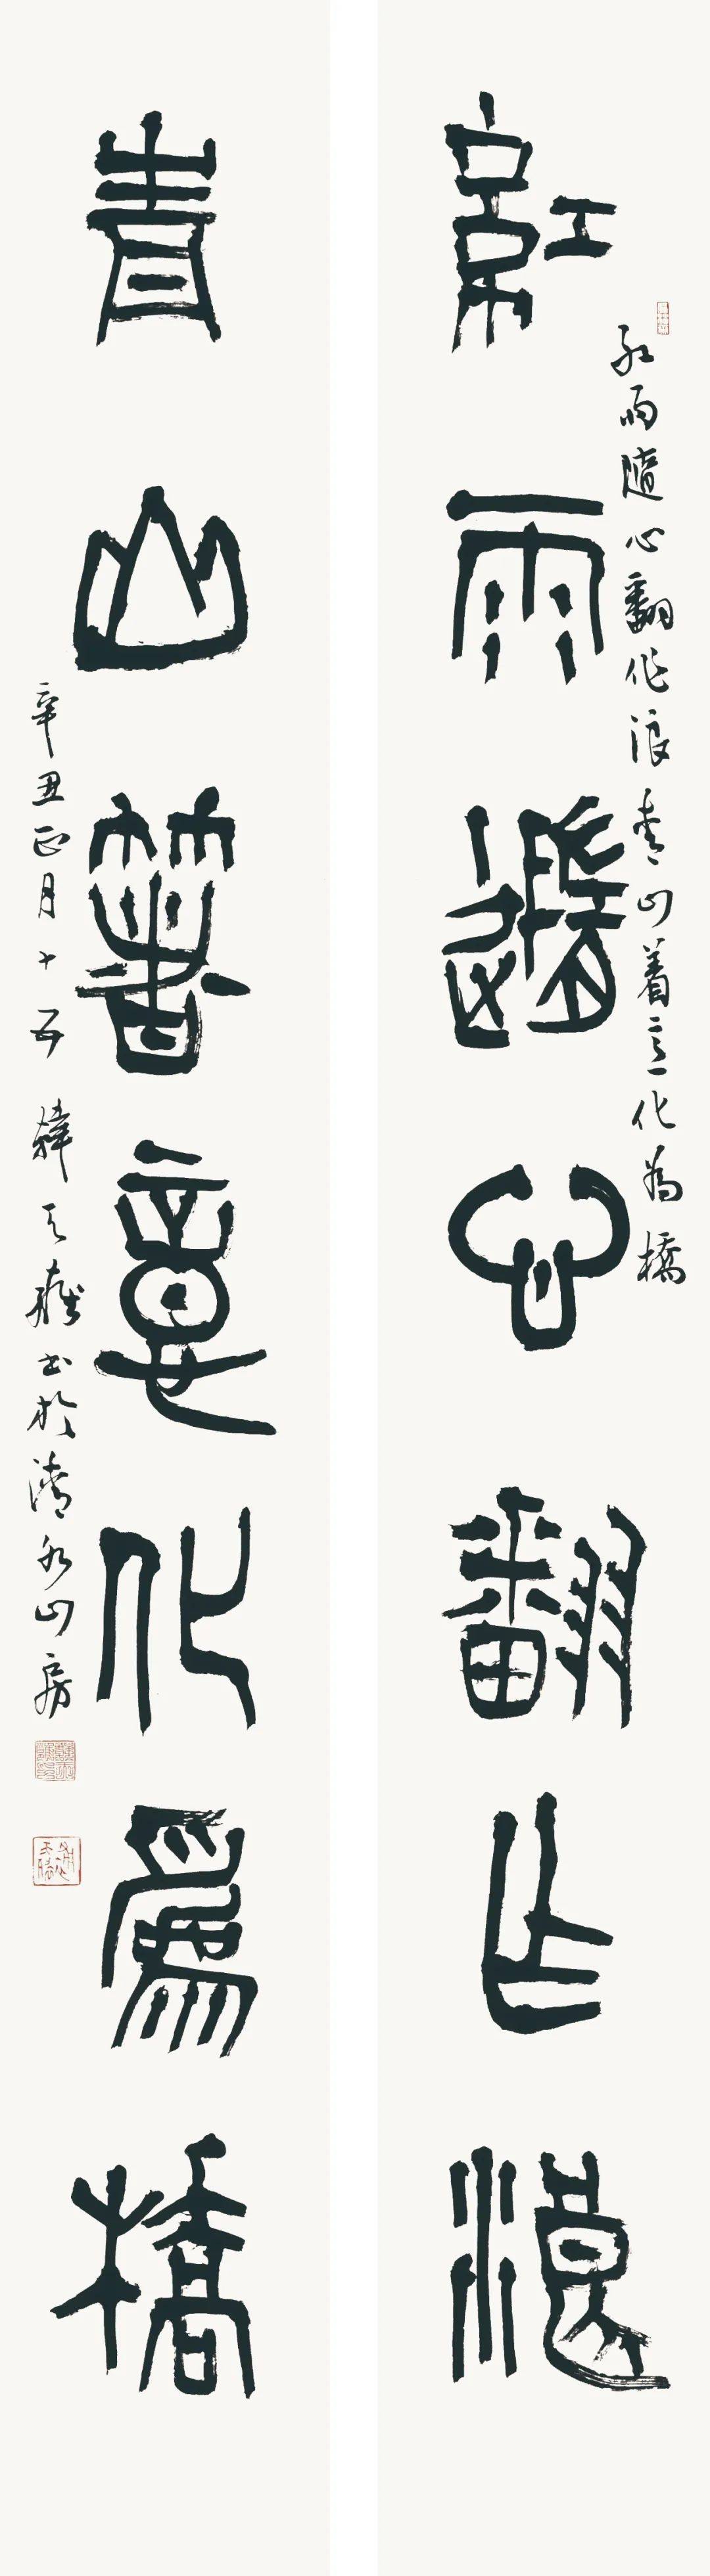 紅雨隨心翻作浪
紅雨隨心翻作浪青山着意化為橋
青山著意化為橋
辛丑正月十五 韓天雍書於清水山房